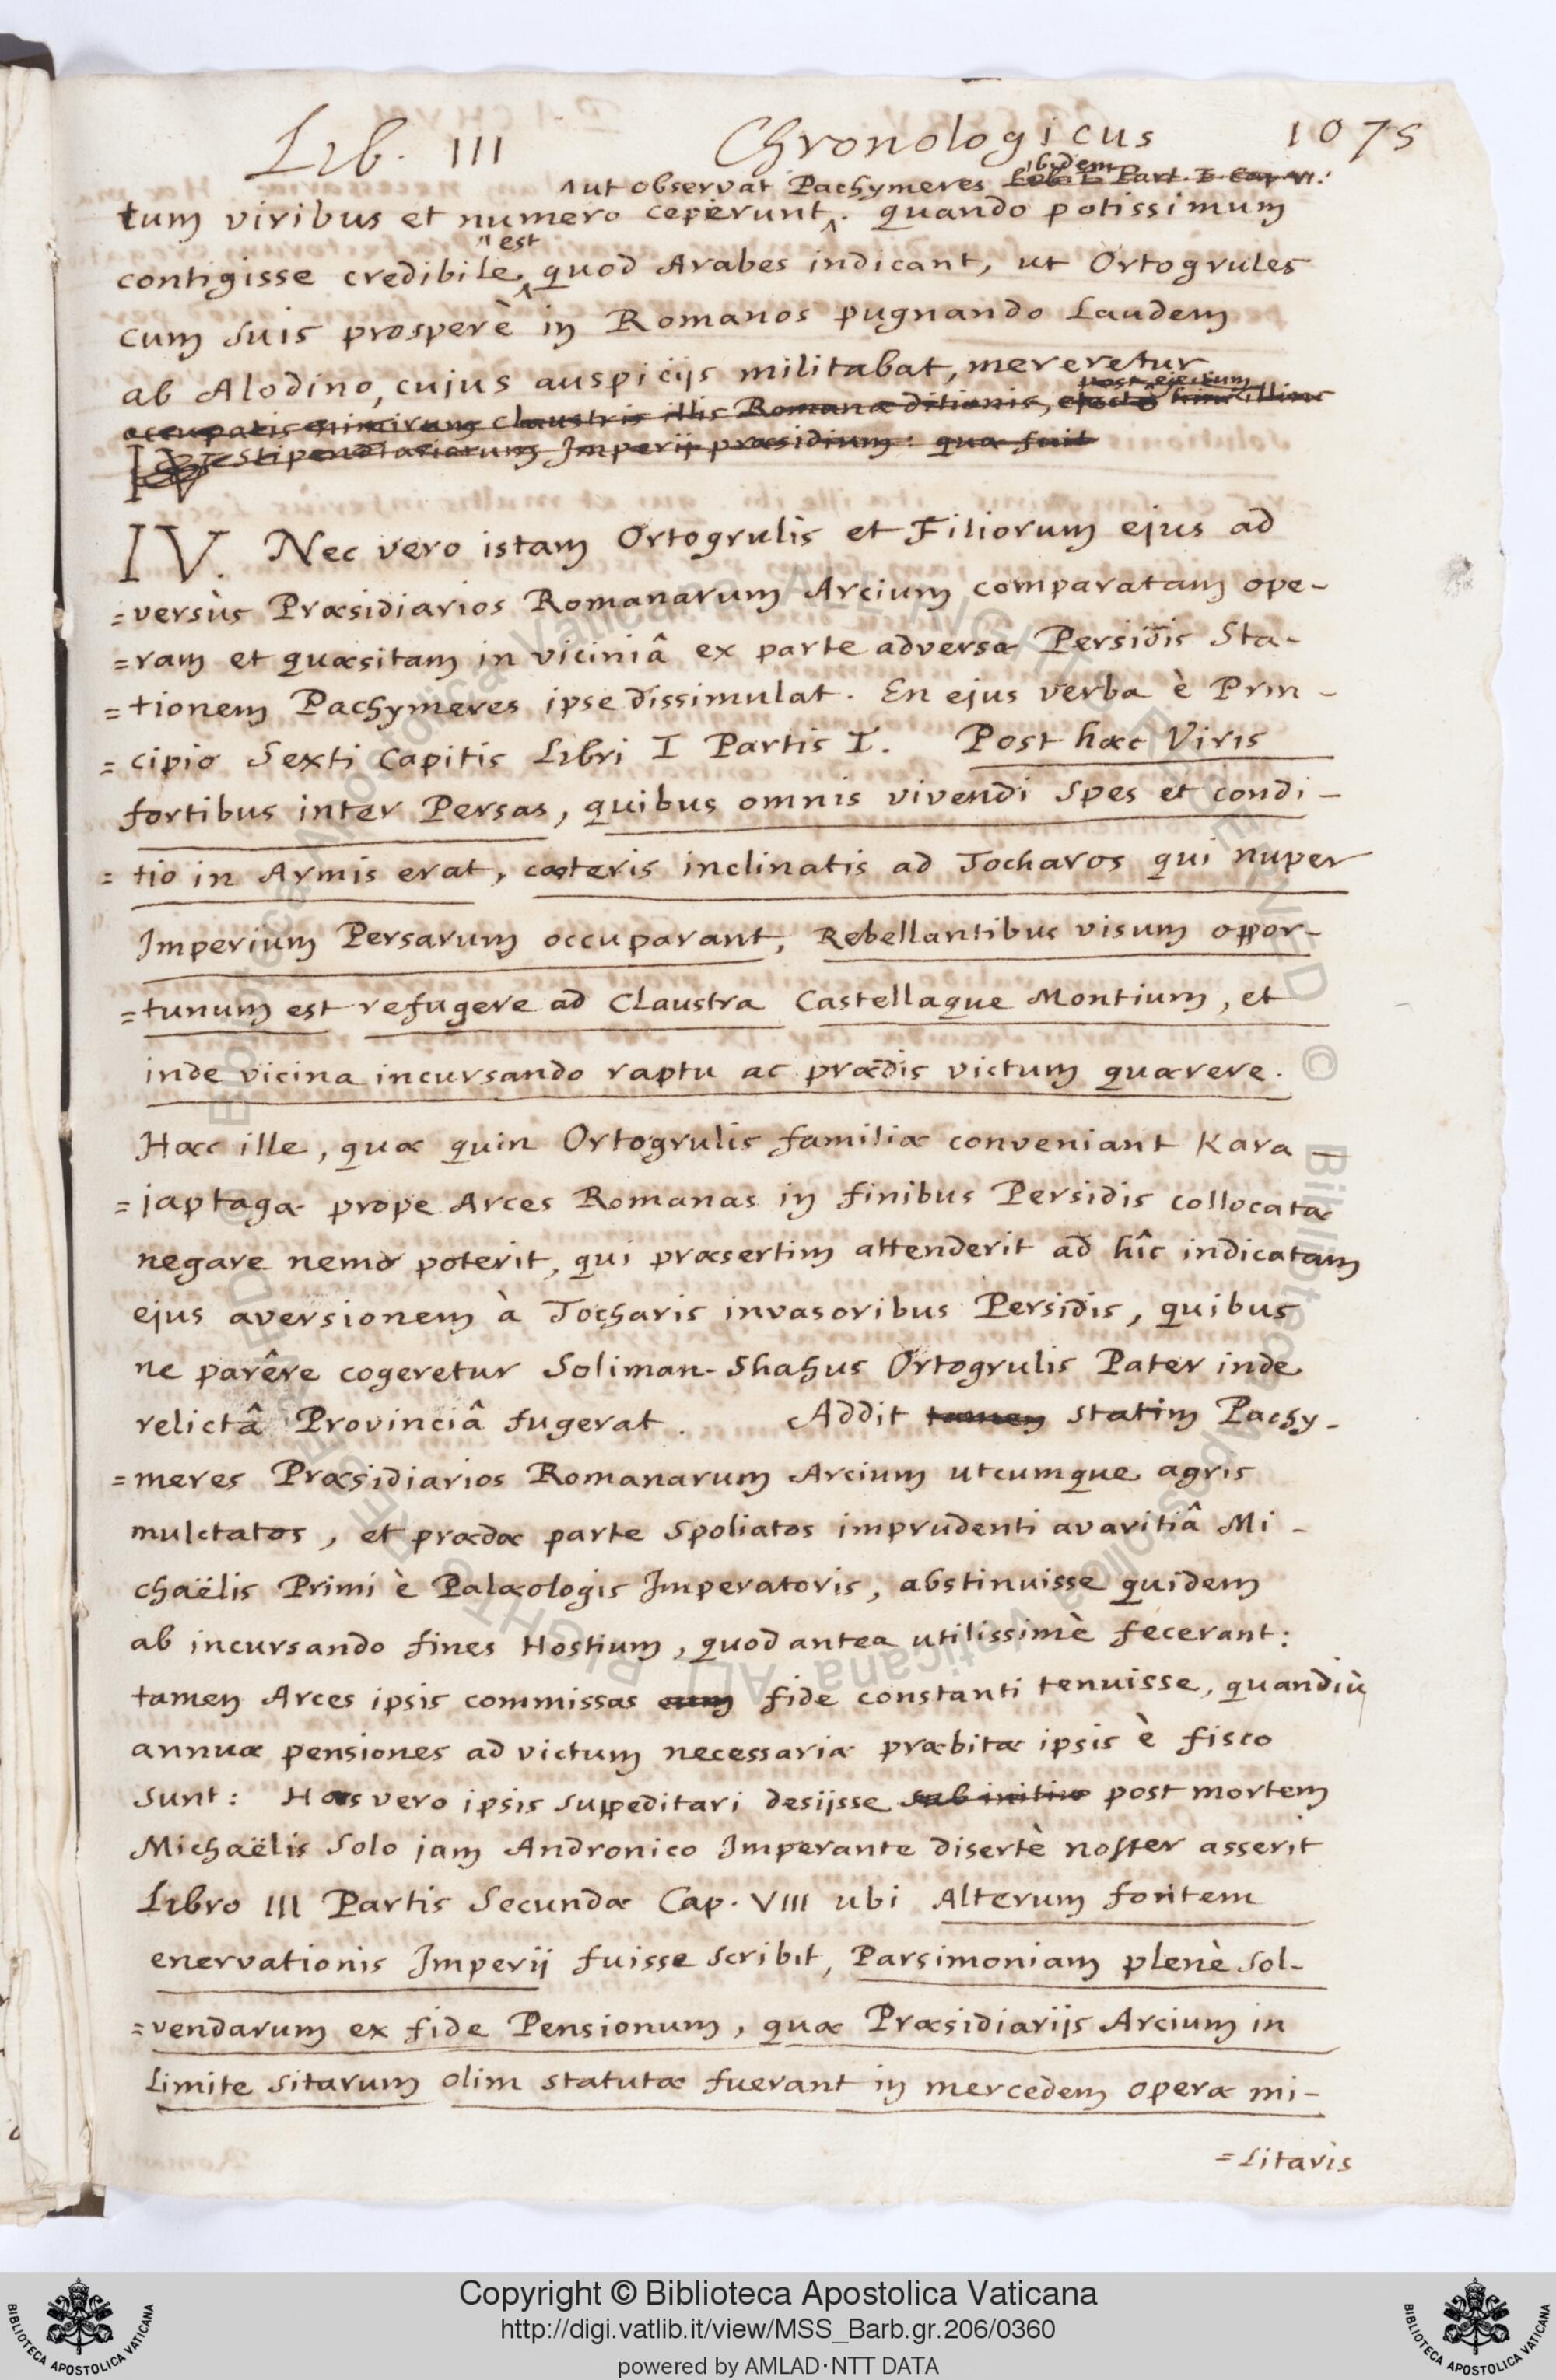 Lib. III Chronologicus 1075
^ut observat Pachymeres ibidem Lib. I Part. I Cap. VI.
tum viribus et numero ceperunt^. quando potissimum
^est
contigisse credibile^, quod Arabes indicant, ut Ortogrules
cum suis prosperè in Romanos pugnando Laudem
ab Alodino, cujus auspicijs militabat, mereretur
post ejectum
occupatis nimirum claustris illis Romanæ ditionis, ejecto hinc illinc
Stipendiariorum Imperij præsidium: qua fuit
IV
IV. Nec vero istam Ortogrulis et Filiorum ejus ad
=versùs Præsidiarios Romanarum Arcium comparatam ope-
=ram et quæsitam in viciniâ ex parte adversa Persidis Sta-
=tionem Pachymeres ipse dissimulat. En ejus verba è Prin-
=cipio Sexti Capitis Libri I Partis I. Post hæc Viris
fortibus inter Persas, quibus omnis vivendi Spes et condi-
=tio in Armis erat, cæteris inclinatis ad Tocharos qui nuper
Imperium Persarum occuparant, Rebellantibus visum oppor-
=tunum est refugere ad Claustra Castellaque Montium, et
inde vicina incursando raptu ac prædis victum quærere.
Hæc ille, quæ quin Ortogrulis familiæ conveniant Kara-
=japtagæ prope Arces Romanas in finibus Persidis collocatæ
negare nemo poterit, qui præsertim attenderit ad hîc indicatam
ejus aversionem à Tocharis invasoribus Persidis, quibus
ne parêre cogeretur Soliman-Shahus Ortogrulis Pater inde
relictâ Provinciâ fugerat. Addit tamen statim Pachy-
=meres Præsidiarios Romanarum Arcium utcumque agris
mulctatos, et prædæ parte Spoliatos imprudenti avaritiâ Mi-
chaëlis Primi è Palæologis Imperatoris, abstinuisse quidem
ab incursando fines Hostium, quod antea utilissimè fecerant:
tamen Arces ipsis commissas cum fide constanti tenuisse, quandiù
annuæ pensiones ad victum necessariæ præbitæ ipsis è fisco
sunt: Has vero ipsis suppeditari desijsse sub initio post mortem
Michaëlis Solo jam Andronico Imperante disertè noster asserit
Libro III Partis Secundæ Cap. VIII ubi Alterum fontem
enervationis Imperij fuisse scribit, Parsimoniam plenè Sol-
=vendarum ex fide Pensionum, quæ Præsidiarijs Arcium in
Limite sitarum olim statutæ fuerant in mercedem operæ mi-
=litaris
Copyright © Biblioteca Apostolica Vaticana
http://digi.vatlib.it/view/MSS_Barb.gr.206/0360
powered by AMLAD·NTT DATA
BIBLIOTECA APOSTOLICA VATICANA
BIBLIOTECA APOSTOLICA VATICANA